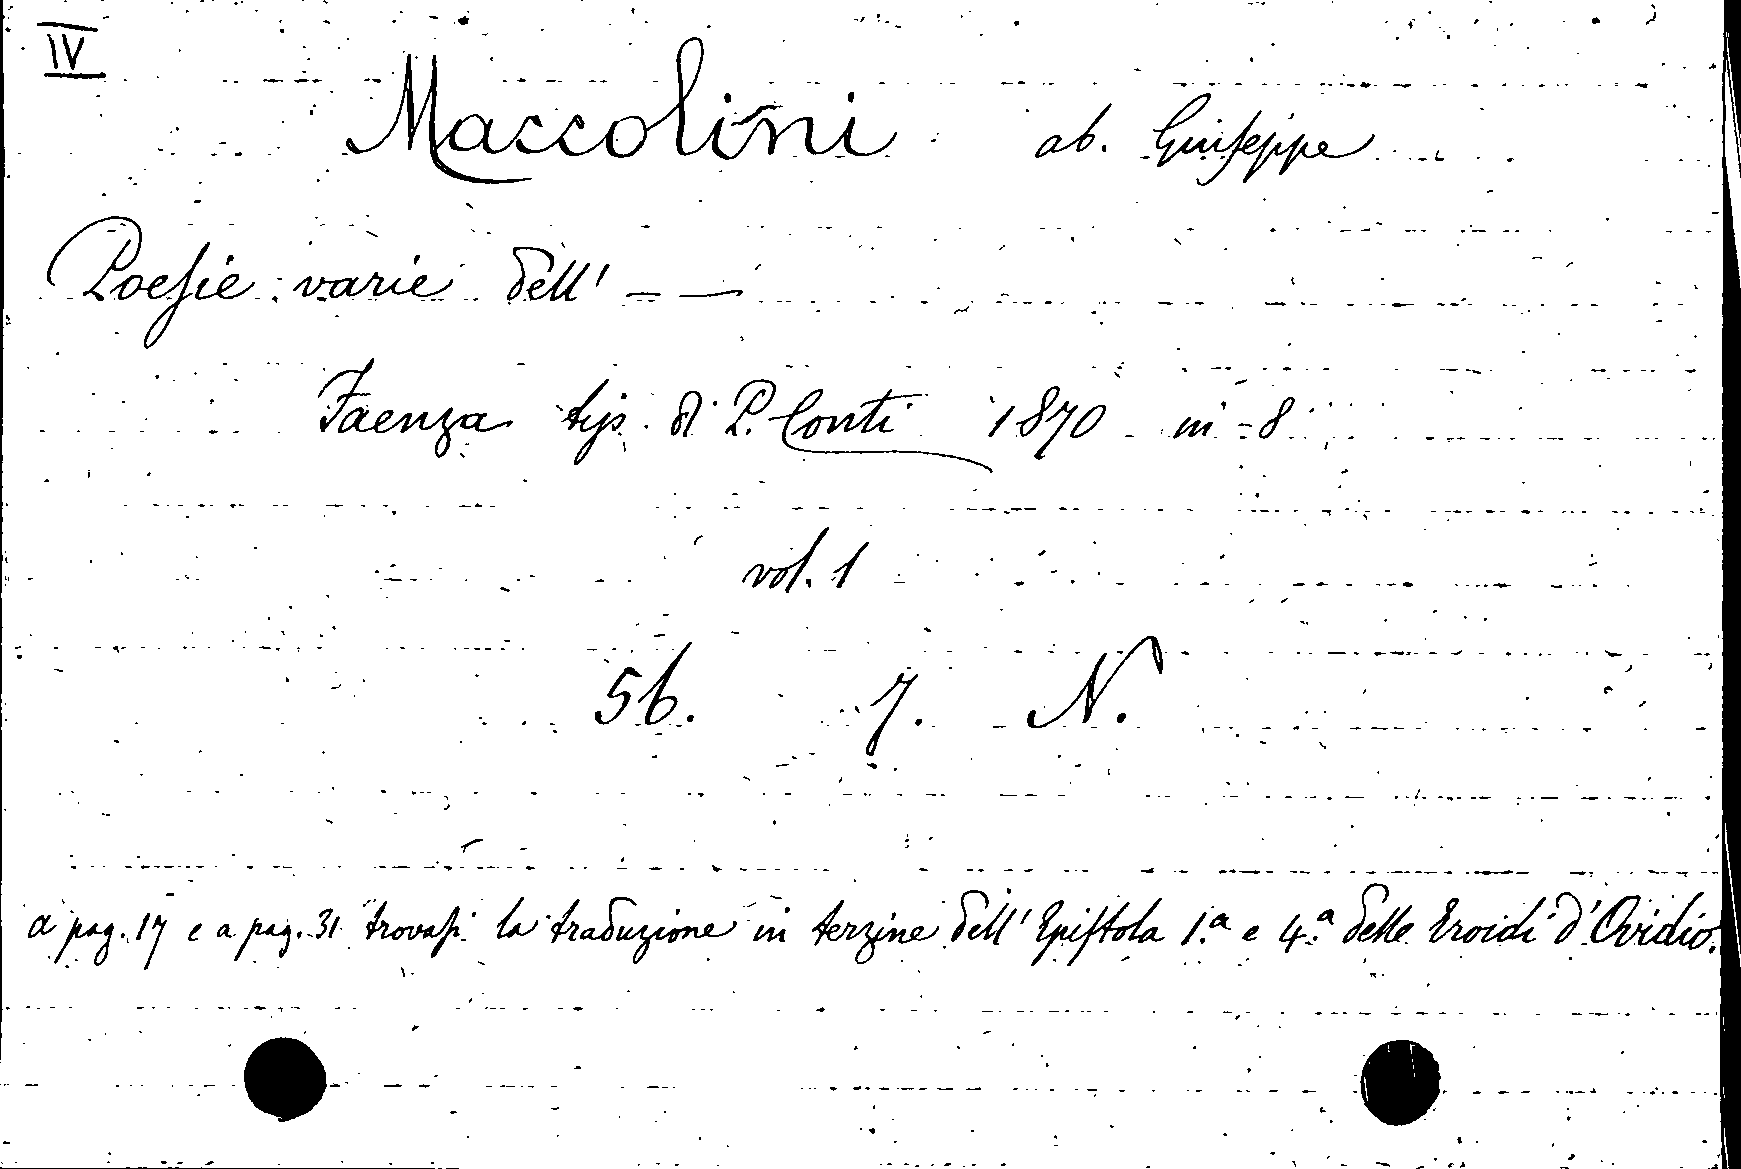 IV
Maccolini ab. Giuseppe
Poesie varie dell' — —
Faenza tip. di P. Conti 1870 in-8
vol. 1
56. 7. N.
a pag. 17 e a pag. 31 trovasi la traduzione in terzine dell'Epistola 1.a e 4.a delle Eroidi d'Ovidio.